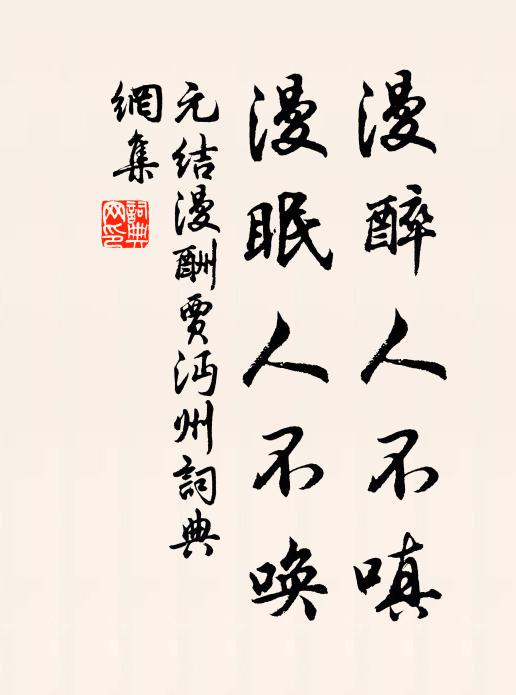 漫醉人不嗔
漫眠人不喚
元结漫酬賈沔州詞典
網集
詞典
网印